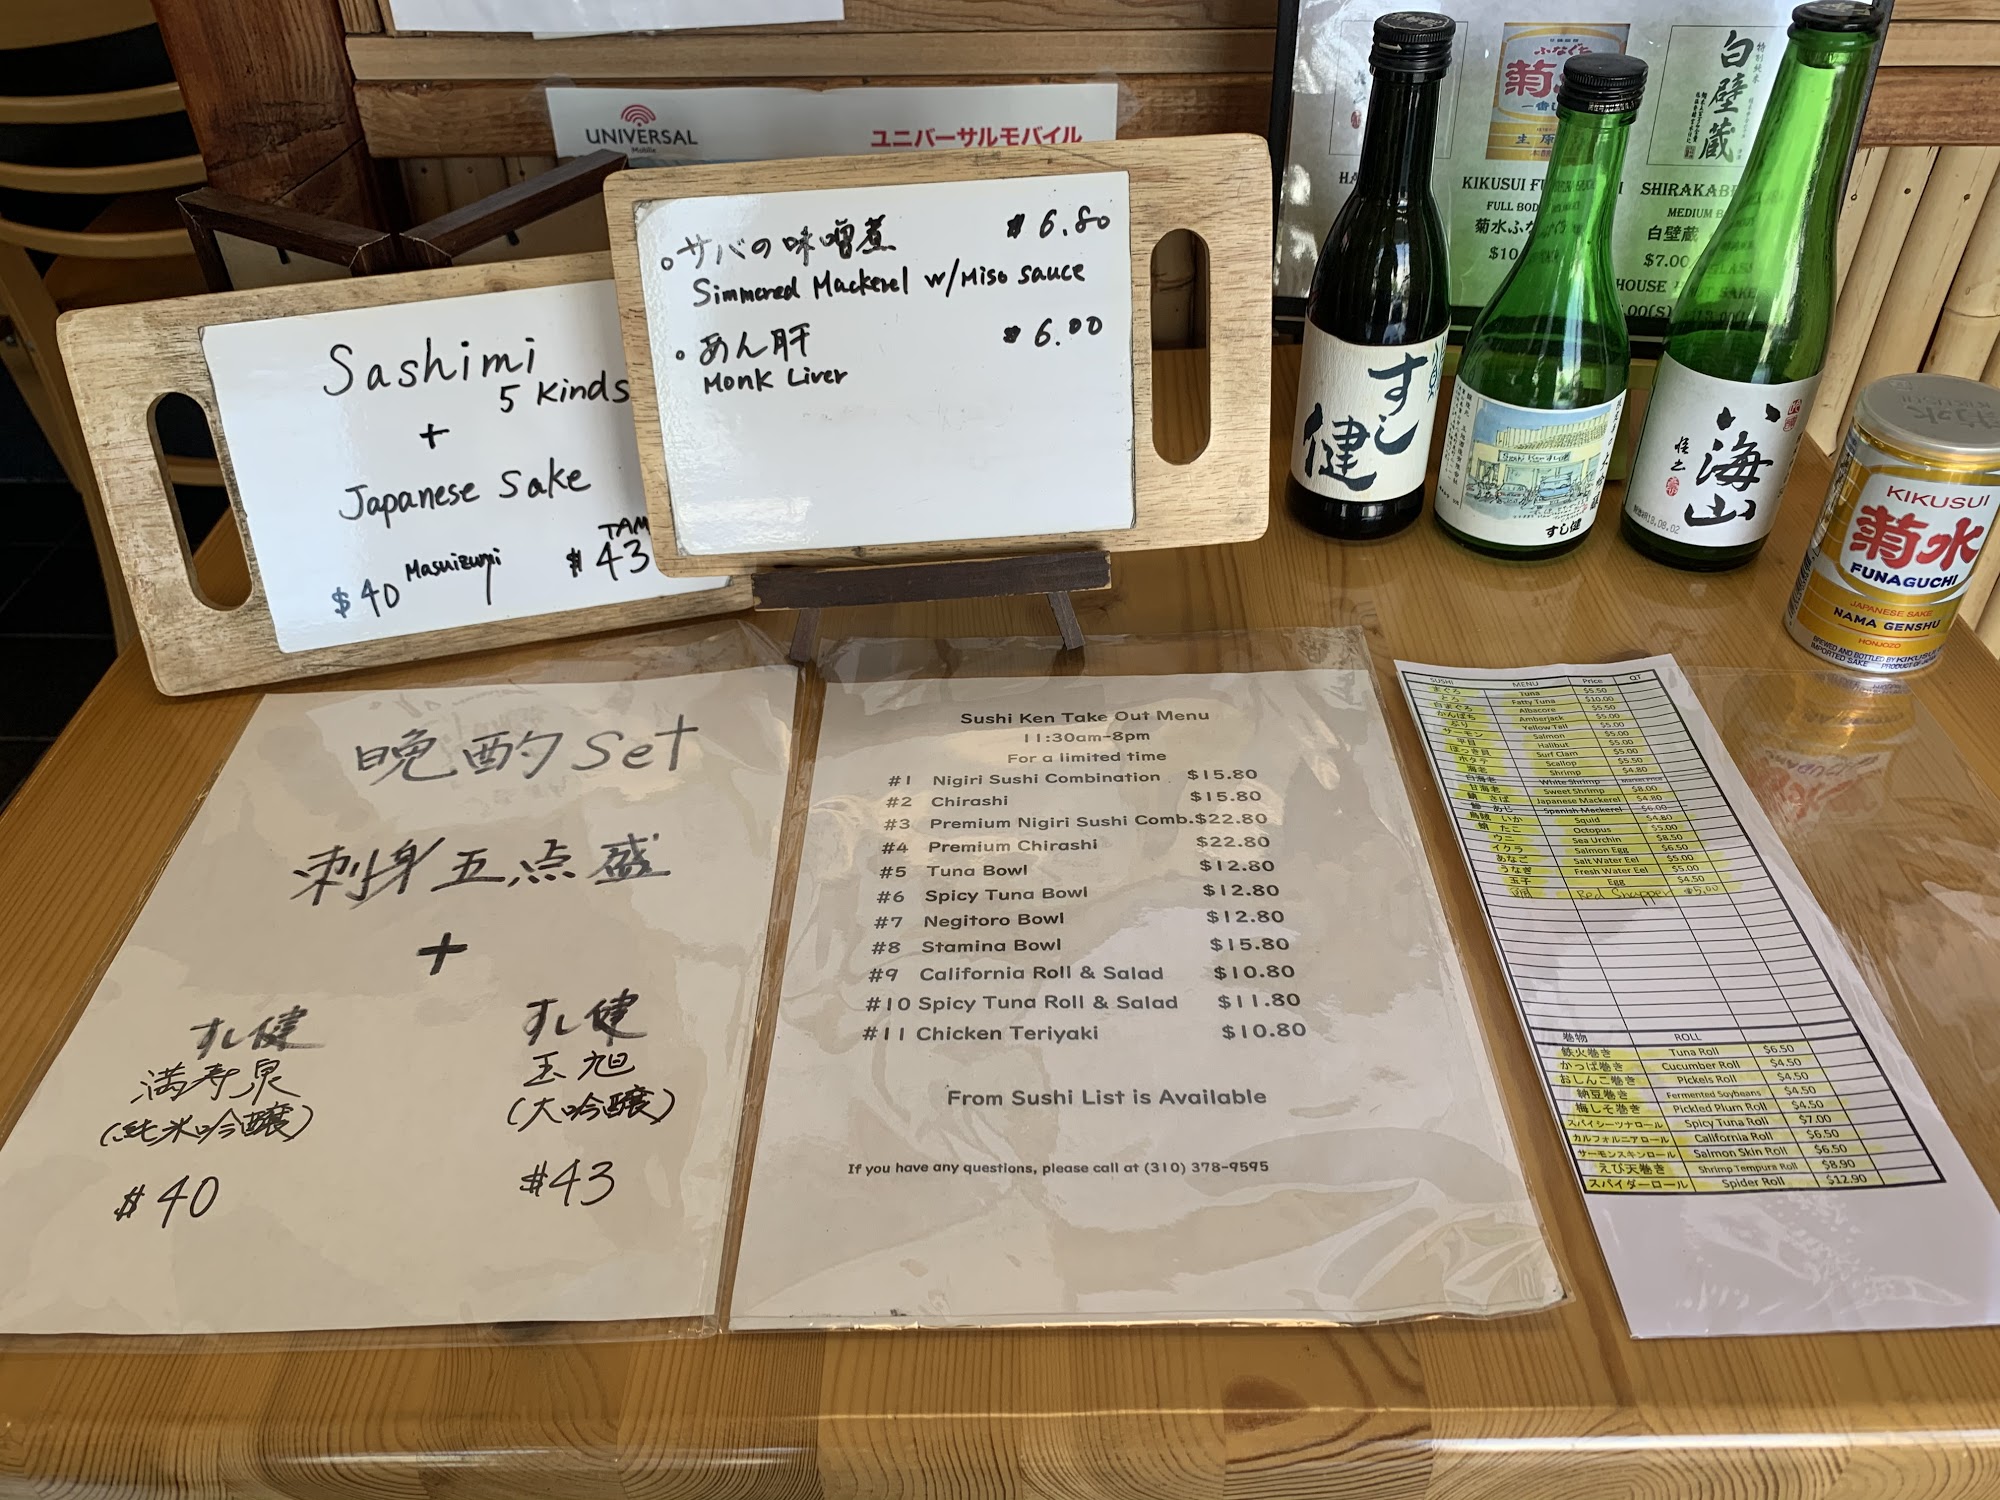 UNIVERSAL
Mobile
ユニバーサルモバイル
Sashimi
5 Kinds
+
Japanese Sake
$40 Masuizumi
TAM
$43
。サバの味噌煮 $6.80
Simmered Mackerel w/Miso sauce
。あん肝 $6.00
Monk Liver
ふなぐち
菊
一番し
KIKUSUI FU
FULL BOD
菊水ふな
$10
特別純米
白壁蔵
SHIRAKABE
MEDIUM B
白壁蔵
$7.00
GLASS
HOUSE H T SAKE
.00(S)
すし健
Sushi Ken すし健
すし健
八海山
製造年月19.08.02
KIKUSUI
菊水
FUNAGUCHI
JAPANESE SAKE
NAMA GENSHU
HONJOZO
BREWED AND BOTTLED BY KIKUSUI
IMPORTED SAKE PRODUCT OF JAPAN
晩酌 Set
刺身五点盛
+
すし健
満寿泉
(純米吟醸)
$40
すし健
玉旭
(大吟醸)
$43
Sushi Ken Take Out Menu
11:30am-8pm
For a limited time
#1 Nigiri Sushi Combination $15.80
#2 Chirashi $15.80
#3 Premium Nigiri Sushi Comb. $22.80
#4 Premium Chirashi $22.80
#5 Tuna Bowl $12.80
#6 Spicy Tuna Bowl $12.80
#7 Negitoro Bowl $12.80
#8 Stamina Bowl $15.80
#9 California Roll & Salad $10.80
#10 Spicy Tuna Roll & Salad $11.80
#11 Chicken Teriyaki $10.80
From Sushi List is Available
If you have any questions, please call at (310) 378-9595
SUSHI MENU Price QT
まぐろ Tuna $5.50
とろ Fatty Tuna $10.00
白まぐろ Albacore $5.50
かんぱち Amberjack $5.00
ぶり Yellow Tail $5.00
サーモン Salmon $5.00
平目 Halibut $5.00
ほっき貝 Surf Clam $5.00
ホタテ Scallop $5.50
海老 Shrimp $4.80
白海老 White Shrimp Market Price
甘海老 Sweet Shrimp $8.00
鯖 さば Japanese Mackerel $4.80
鯵 あじ Spanish Mackerel $6.00
烏賊 いか Squid $4.80
蛸 たこ Octopus $5.00
ウニ Sea Urchin $8.50
イクラ Salmon Egg $6.50
あなご Salt Water Eel $5.00
うなぎ Fresh Water Eel $5.00
玉子 Egg $4.50
鯛 Red Snapper $5.00
巻物 ROLL
鉄火巻き Tuna Roll $6.50
かっぱ巻き Cucumber Roll $4.50
おしんこ巻き Pickels Roll $4.50
納豆巻き Fermented Soybeans $4.50
梅しそ巻き Pickled Plum Roll $4.50
スパイシーツナロール Spicy Tuna Roll $7.00
カルフォルニアロール California Roll $6.50
サーモンスキンロール Salmon Skin Roll $6.50
えび天巻き Shrimp Tempura Roll $8.90
スパイダーロール Spider Roll $12.90